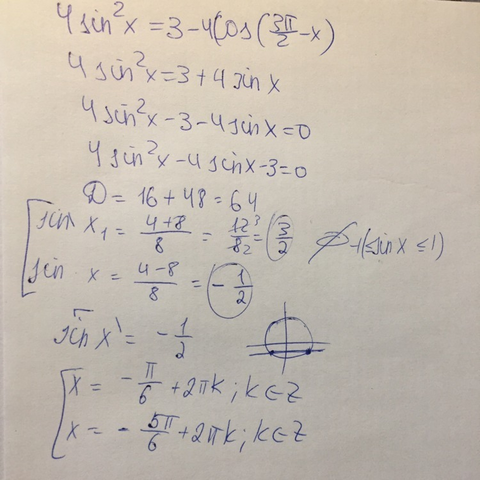 4 sin²x = 3 - 4Cos(3π/2 - x)
4 sin²x = 3 + 4 sin x
4 sin²x - 3 - 4 sin x = 0
4 sin²x - 4 sin x - 3 = 0
D = 16 + 48 = 64
sin x₁ = (4+8)/8 = 12³/8₂ = 3/2 ∅ -1(≤ sin x ≤ 1)
sin x = (4-8)/8 = -1/2
sin x = -1/2
x = -π/6 + 2πk; k∈Z
x = -5π/6 + 2πk; k∈Z